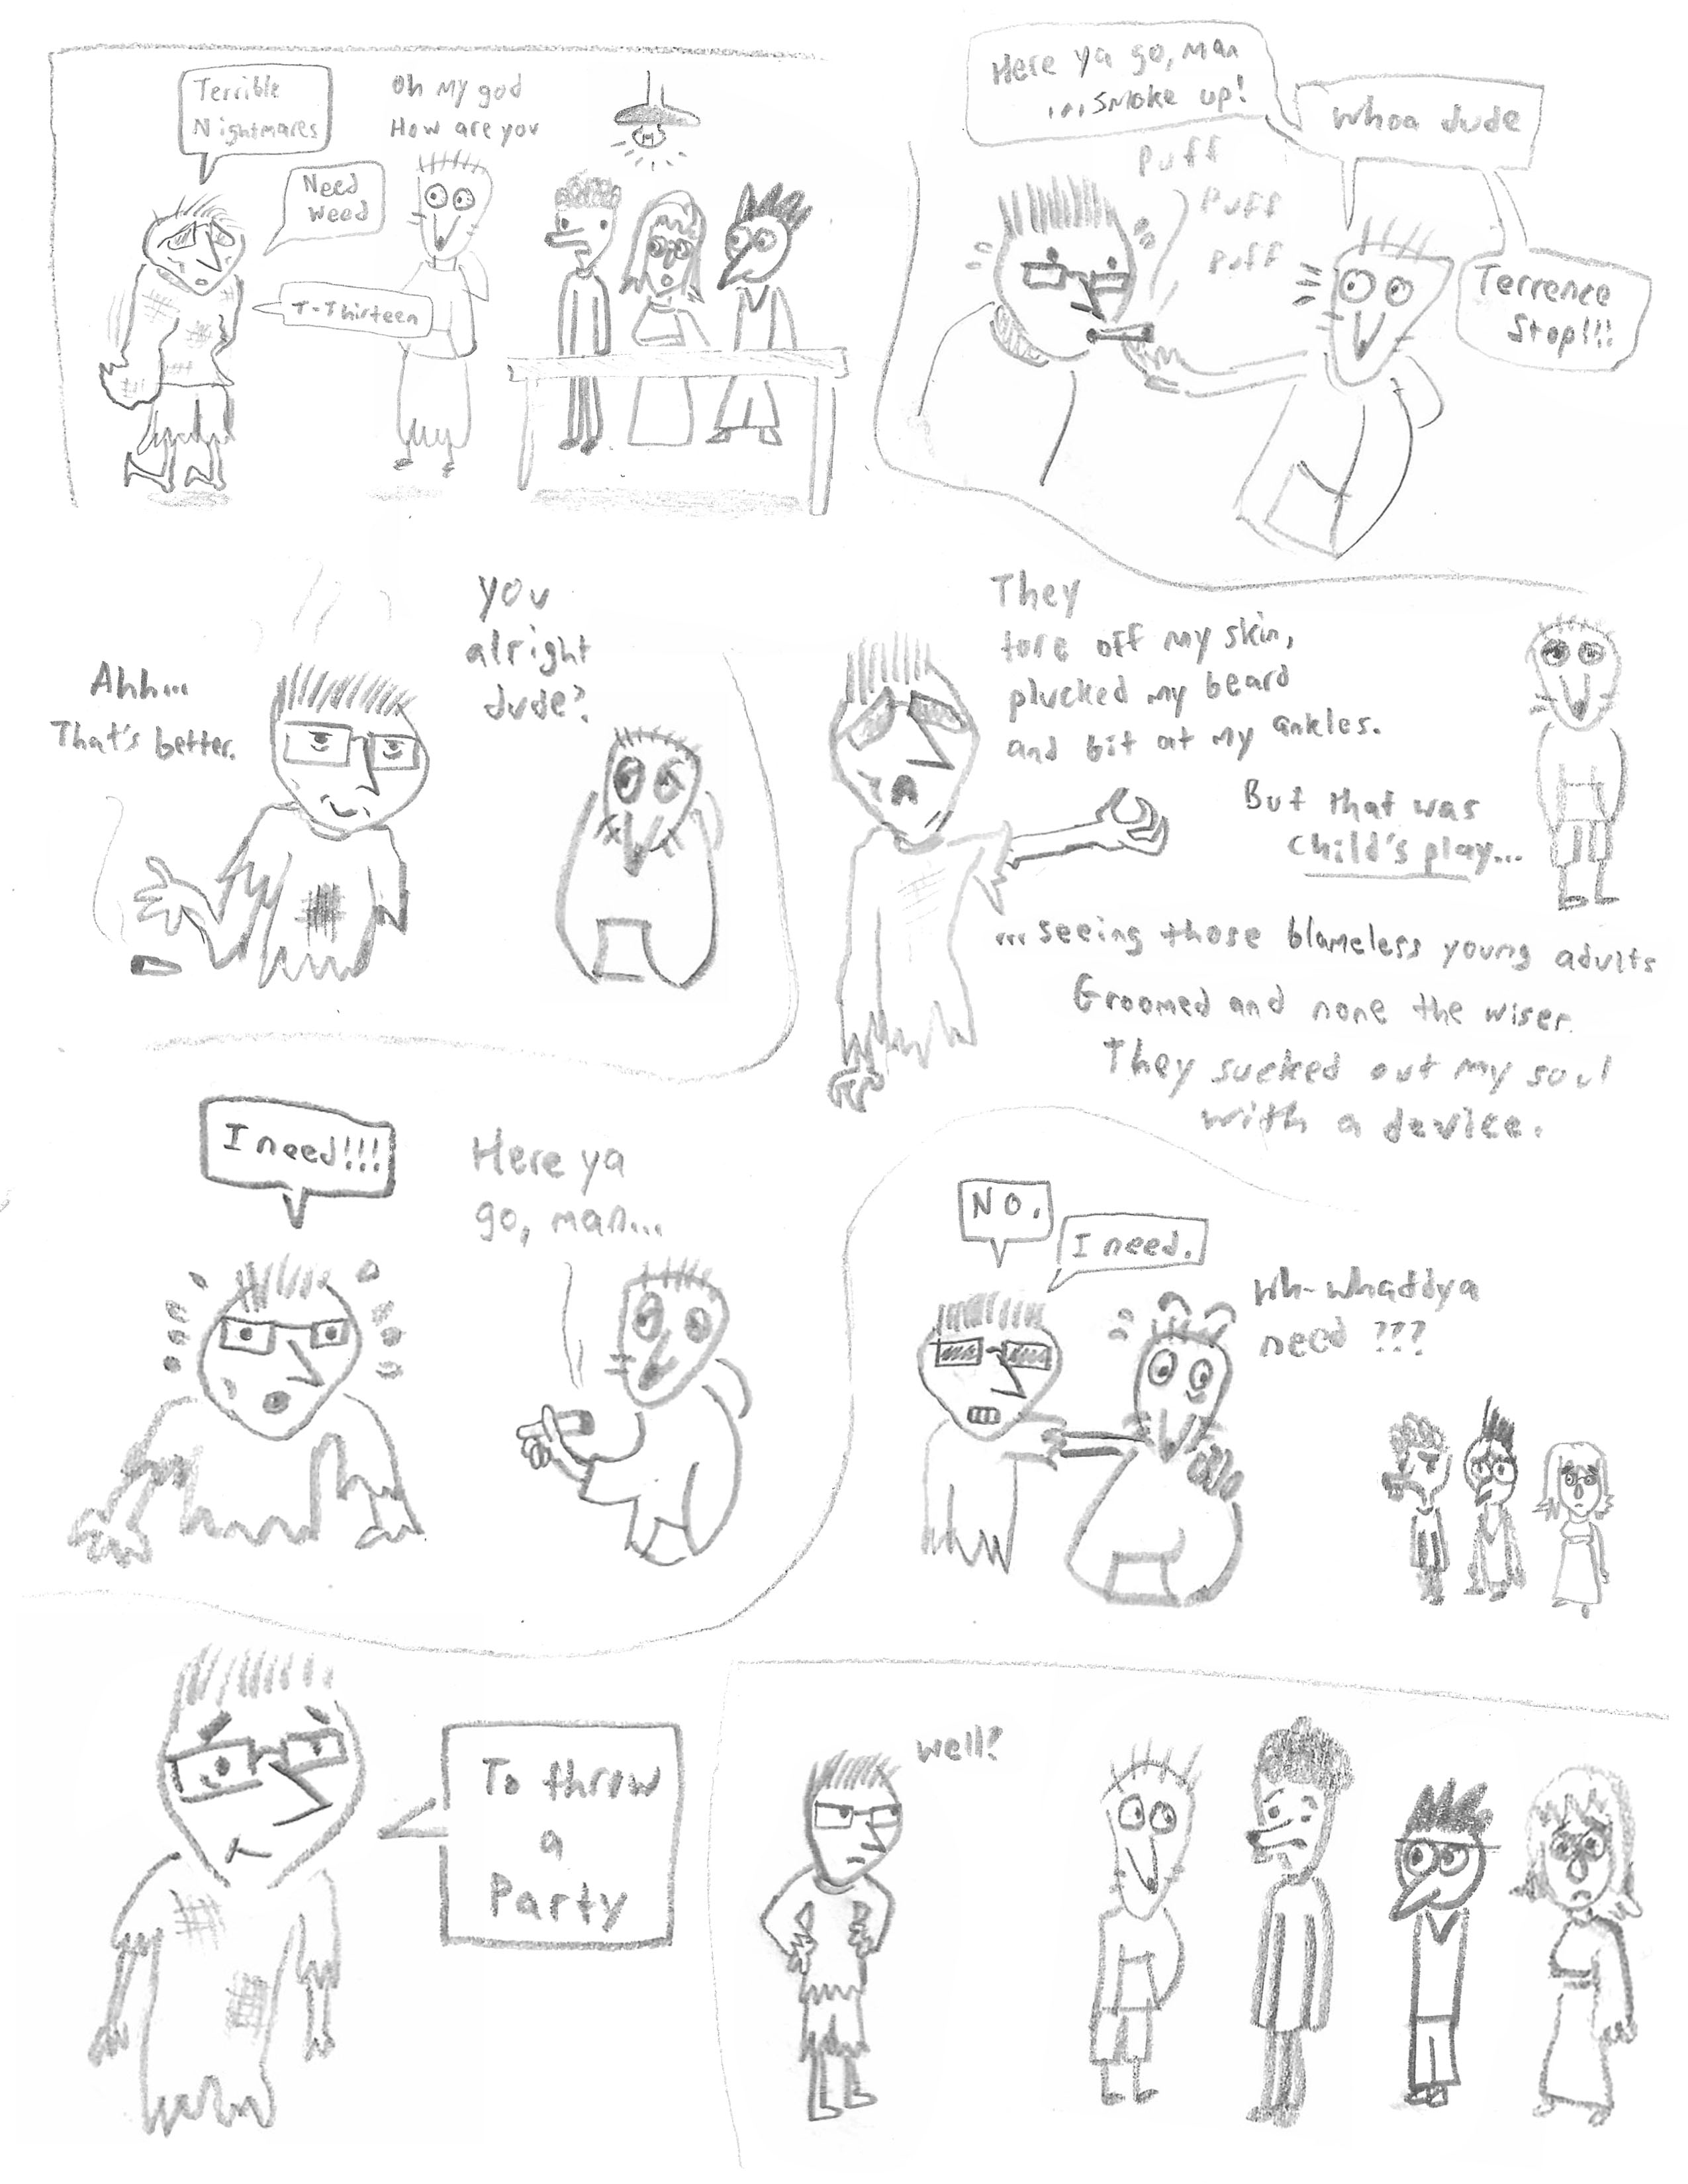 Terrible
Nightmares
Need
Weed
T-Thirteen
Oh My god
How are you
Here ya go, Man
...smoke up!
Whoa dude
Terrence
Stop!!!
Puff
Puff
Puff
Ahh...
That's better.
you
alright
dude?
They
tore off my skin,
plucked my beard
and bit at my ankles.
But that was
child's play...
...seeing those blameless young adults
Groomed and none the wiser.
They sucked out my soul
with a device.
I need!!!
Here ya
go, man...
NO.
I need.
Wh-whaddya
need ???
To throw
a
Party
Well?